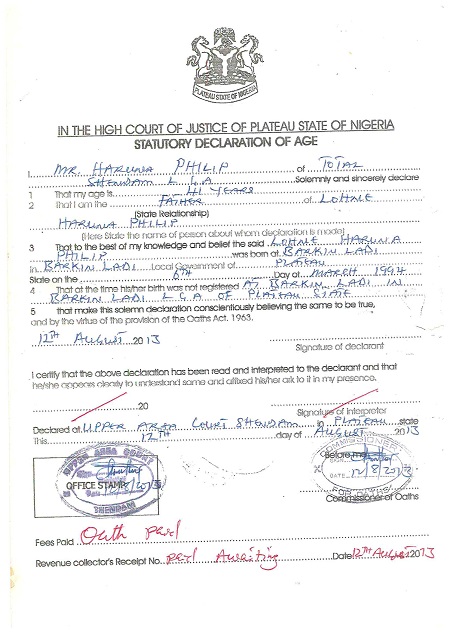 PLATEAU STATE OF NIGERIA
IN THE HIGH COURT OF JUSTICE OF PLATEAU STATE OF NIGERIA
STATUTORY DECLARATION OF AGE
I, MR. HARUNA PHILIP of TOTAL
SHENDAM L G A Solemnly and sincerely declare
1 That my age is 41 YEARS
2 that I am the FATHER of LOHNE
(State Relationship)
HARUNA PHILIP
(Here State the name of person about whom declaration is made)
3 That to the best of my knowledge and belief the said LOHNE HARUNA
PHILIP was born at BARKIN LADI
in BARKIN LADI Local Government of PLATEAU
State on the 6th Day of MARCH 1994
4 That at the time his/her birth was not registered AT BARKIN LADI IN
BARKIN LADI L G A OF PLATEAU STATE
5 that make this solemn declaration conscientiously believing the same to be true,
and by the virtue of the provision of the Oaths Act. 1963.
12th AUGUST 2013
Signature of declarant
I certify that the above declaration has been read and interpreted to the declarant and that
he/she appears clearly to understand same and affixed his/her ark to it in my presence.
20
Signature of interpreter
Declared at UPPER AREA COURT SHENDAM in PLATEAU state
This 12TH day of AUGUST 2013
UPPER AREA COURT
OFFICE STAMP
SHENDAM
COMMISSIONER
Before me
DATE 12/8/2013
FOR OATHS
Commissioner of Oaths
Fees Paid Oath paid
Revenue collector's Receipt No. paid Awaiting Date 12th August 2013